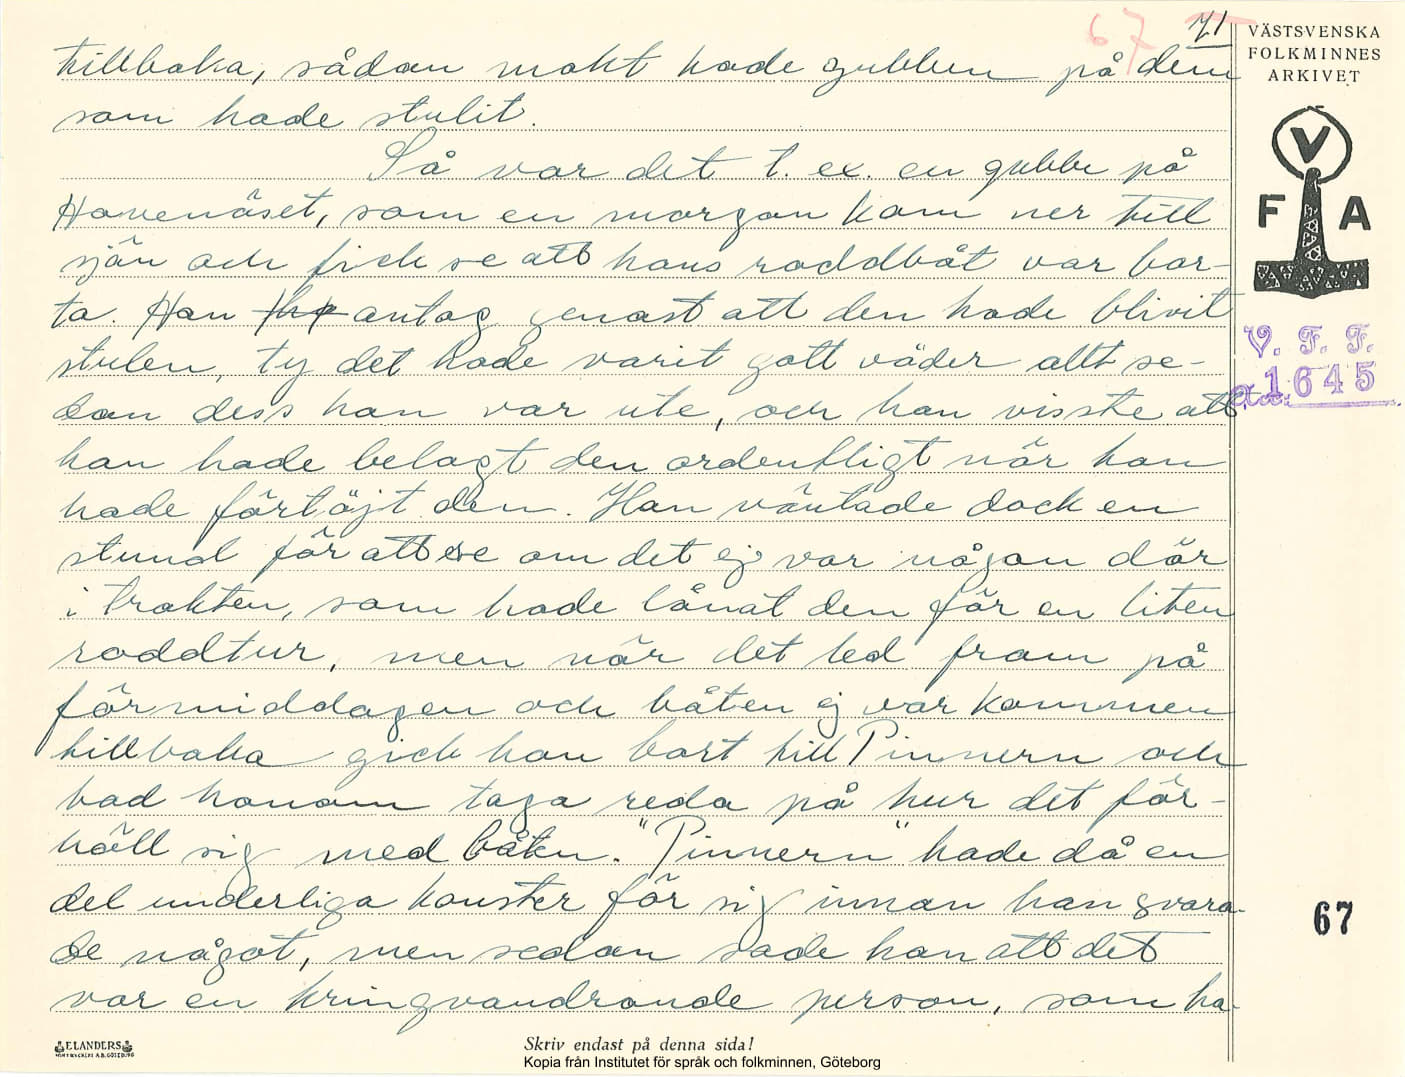 67 71
VÄSTSVENSKA
FOLKMINNES
ARKIVET
V
F A
V. F. F.
1645
tillbaka, sådan makt hade gubben på dem
som hade stulit.
Så var det t. ex. en gubbe på
Havenäset, som en morgon kom ner till
sjön och fick se att hans roddbåt var bor-
ta. Han antog genast att den hade blivit
stulen, ty det hade varit gott väder allt se-
dan dess han var ute, och han visste att
han hade belagt den ordentligt när han
hade förtöjt den. Han väntade dock en
stund för att se om det ej var någon där
i trakten, som hade lånat den för en liten
roddtur, men när det led fram på
förmiddagen och båten ej var kommen
tillbaka gick han bort till Pinnern och
bad honom taga reda på hur det för-
höll sig med båten. "Pinnern" hade då en
del underliga konster för sig innan han svara-
de något, men sedan sade han att det
var en kringvandrande person, som ha-
67
ELANDERS
Skriv endast på denna sida!
Kopia från Institutet för språk och folkminnen, Göteborg